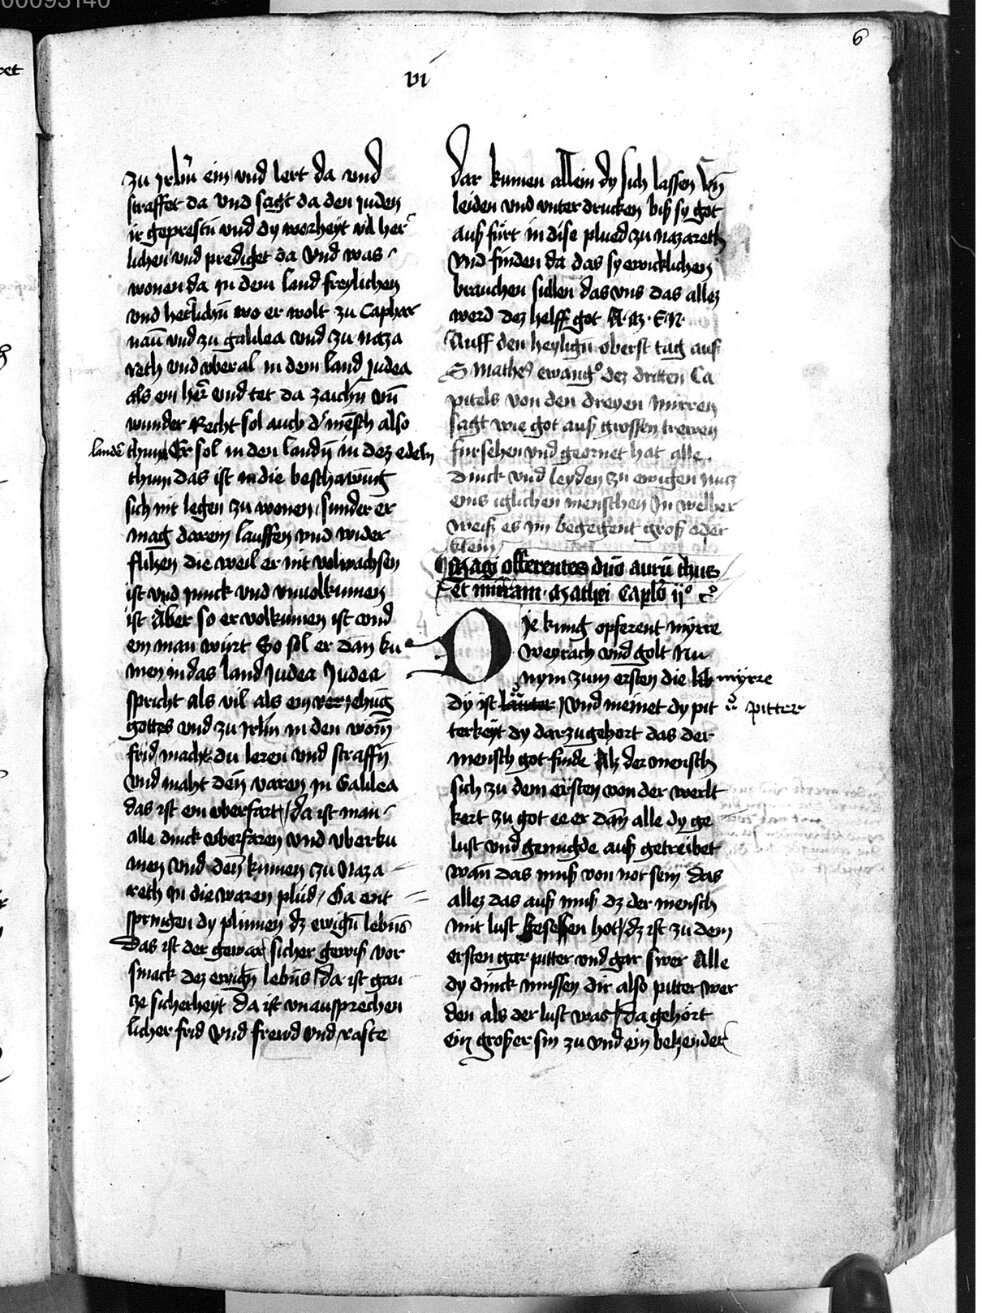 6
vi
zu Jrlm ein vnd lert da vnd
straffet da vnd sagt da den juden
ir geprestn vnd dy worheyt vil her
lichen vnd prediget da Vnd was
wonen da in dem land freylichen
vnd herlichn wo er wolt zu Caphar
naū vnd zu galilea vnd zu naza
reth vnd vberal in dem land Judea
als ein her vnd tet da zaichn vn̄
wunder Recht sol auch d' mēsch also
lande thun Er sol in den landn̄ in dez edeln
thun das ist in die beschawūg
sich nit legen zu wonen sunder er
mag darein lauffen vnd wider
flihen die weil er nit volwachsen
ist vnd junck vnd vnuolkumen
ist Aber so er volkumen ist vnd
ein man wirt So sol er dan ku
men in das land Judea Judea
spricht als vil als ein veriehūg
gottes vnd zu Jrlm in den worn̄
frid macht du leren vnd straffn̄
vnd maht den̄ varen in Galilea
das ist ein vberfart / da ist man
alle dinck vberfaren vnd vberku
men vnd den̄ kumen zu Naza
reth in die waren plüd / Da ent
springen dy plumen dz ewign̄ lebn̄s
Das ist der gewar sicher gewiß vor
smack dez ewign̄ lebn̄s / da ist gan
cze sicherheyt da ist vnaussprechen
licher frid vnd frewd vnd raste
dar kumen allein dy sich lassen vn̄
leiden vnd vnter drucken biß sy got
auß fürt in dise plued zu nazareth
vnd finden da das sy ewicklichen
brauchen sullen das vns das allez
werd dez helff got A M E N
Auff den heylign̄ oberst tag auß
S Matheꝰ ewangº dez dritten Ca
pitels von den dreyen mirren
sagt wie got auß grossen trewen
fürsehen vnd geornet hat alle
dinck vnd leyden zu ewigen nucz
eins iglichen menschen Jn welher
weiß es im begegent groß oder
klein
Magi offerentes dn̄o aurū thus
Et mirram Mathei Caplō ijº ℭº
DJe kunig opferent myrre
weyrach vnd golt Nu
nym zum ersten die myrre
dy ist pitter vnd meinet dy pit
terkeyt dy darzu gehort das der
mensch got finde Als der mensch
sich zu dem ersten von der werlt
kert zu got ee er dan̄ alle dy ge
lust vnd genugde auß getreibet
wan̄ das muß von not sein das
allez das auß muß dz der mensch
mit lust besessen hot / dz ist zu dem
ersten gar pitter vnd gar swer Alle
dy dinck mussen dir also pitter wer
den als der lust was / Da gehört
ein großer sin zu vnd ein behender